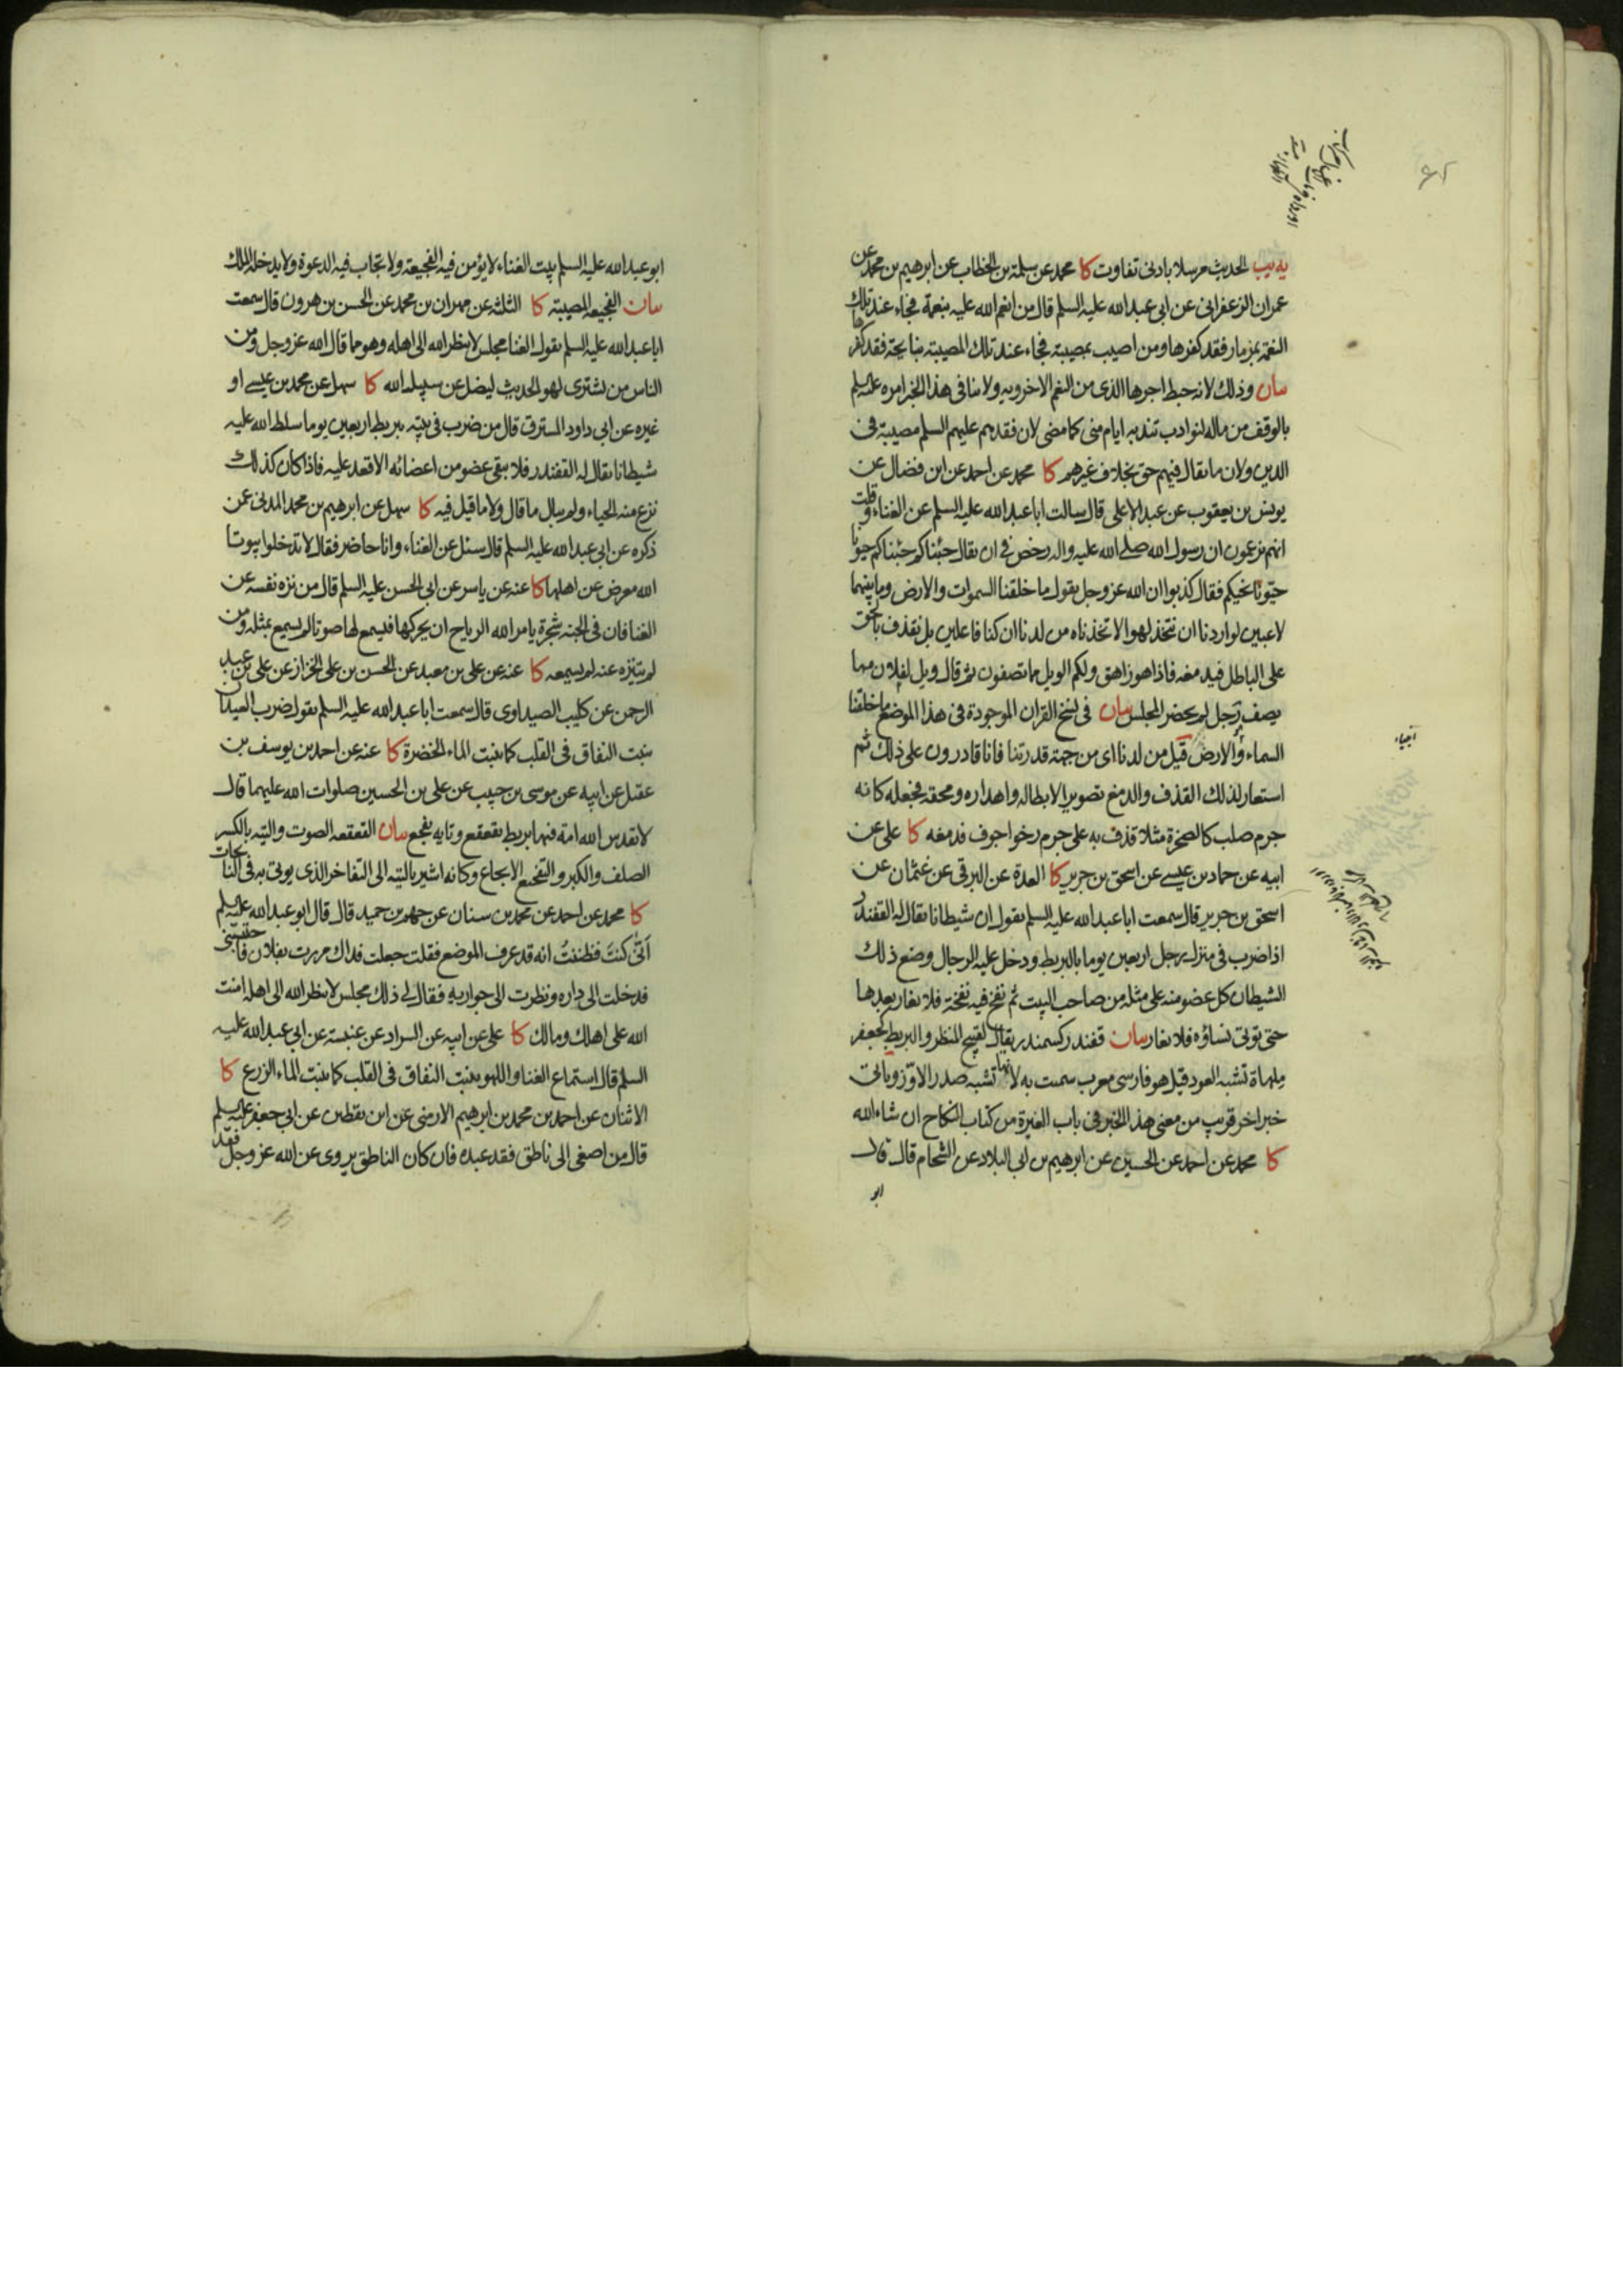 يه يب الحديث مرسلا بادنى تفاوت كا محمد عن سلمة بن الخطاب عن ابرهيم بن محمد عن
عمران الزعفرانى عن ابى عبدالله عليه السلم قال من انعم الله عليه بنعمة فجاء عند تلك
النعمة بمزمار فقد كفرها ومن اصيب بمصيبة فجاء عند تلك المصيبة بنايحة فقد كفرها
بيان وذلك لانه حبط اجرها الذى من النعم الاخروية ولا ينافى هذا الخبر امره عليه السلم
بالوقف من ماله لنوادب تندبه ايام منى كما مضى لان فقدهم عليهم السلم مصيبة فى
الدين ولان ما يقال فيهم حق بخلاف غيرهم كا محمد عن احمد عن ابن فضال عن
يونس بن يعقوب عن عبد الاعلى قال سالت ابا عبدالله عليه السلم عن الغناء وقلت
انهم يزعمون ان رسول الله صلى الله عليه واله رخص فى ان يقال جئناكم جئناكم حيونا
حيّونا نحيكم فقال كذبوا ان الله عزوجل يقول ما خلقنا السموات والارض وما بينهما
لاعبين لو اردنا ان نتخذ لهوا لاتخذناه من لدنا ان كنا فاعلين بل نقذف بالحق
على الباطل فيدمغه فاذا هو زاهق ولكم الويل مما تصفون ثم قال ويل لفلان مما
يصف رجل لم يحضر المجلس بيان فى نسخ القران الموجودة فى هذا الموضع وما خلقنا
السماء والارض قيل من لدنا اى من جهة قدرتنا فانا قادرون على ذلك ثم
استعار لذلك القذف والدمغ تصويرا لابطاله واهداره ومحقه فجعله كانه
جرم صلب كالصخرة مثلا قذف به على جرم رخو اجوف فدمغه كا على عن
ابيه عن حماد بن عيسى عن اسحق بن جرير كا العدة عن البرقى عن عثمان عن
اسحق بن جرير قال سمعت ابا عبدالله عليه السلم يقول ان شيطانا يقال له القفندر
اذا ضرب فى منزل رجل اربعين يوما بالبربط ودخل عليه الرجال وضع ذلك
الشيطان كل عضو منه على مثله من صاحب البيت ثم نفخ فيه نفخة فلا يغار بعدها
حتى توتى نساؤه فلا يغار بيان قفندر كسمندر يقال لقبيح المنظر والبربط كجعفر
ملهاة تشبه العود قيل هو فارسى معرب سميت به لانها تشبه صدر الاوّز وياتى
خبر اخر قريب من معنى هذا الخبر فى باب الغيرة من كتاب النكاح ان شاء الله
كا محمد عن احمد عن الحسين عن ابرهيم بن ابى البلاد عن الشحام قال قال
ابو
ابو عبدالله عليه السلم بيت الغناء لا يؤمن فيه الفجيعة ولا تجاب فيه الدعوة ولا يدخله الملك
بيان الفجيعة المصيبة كا الثلثة عن مهران بن محمد عن الحسن بن هرون قال سمعت
ابا عبدالله عليه السلم يقول الغنا مجلس لا ينظر الله الى اهله وهو مما قال الله عزوجل ومن
الناس من يشترى لهو الحديث ليضل عن سبيل الله كا سهل عن محمد بن عيسى او
غيره عن ابى داود المسترق قال من ضرب فى بيته بربط اربعين يوما سلط الله عليه
شيطانا يقال له القفندر فلا يبقى عضو من اعضائه الا قعد عليه فاذا كان كذلك
نزع منه الحياء ولم يبال ما قال ولا ما قيل فيه كا سهل عن ابرهيم بن محمد المدنى عمن
ذكره عن ابى عبدالله عليه السلم قال سئل عن الغناء وانا حاضر فقال لا تدخلوا بيوتا
الله معرض عن اهلها كا عنه عن ياسر عن ابى الحسن عليه السلم قال من نزه نفسه عن
الغنا فان فى الجنة شجرة يامر الله الرياح ان يحركها فليسمع لها صوتا لم يسمع بمثله ومن
لم يتنزه عنه لم يسمعه كا عنه عن على بن معبد عن الحسن بن على الخزاز عن على بن عبد
الرحمن عن كليب الصيداوى قال سمعت ابا عبدالله عليه السلم يقول ضرب العيدان
ينبت النفاق فى القلب كما ينبت الماء الخضرة كا عنه عن احمد بن يوسف بن
عقيل عن ابيه عن موسى بن حبيب عن على بن الحسين صلوات الله عليهما قال
لا يقدس الله امة فيها بربط يقعقع وتايه يفجع بيان القعقعة الصوت والتيه بالكسر
الصلف والكبر والتفجيع الايجاع وكانه اشير بالتيه الى التفاخر الذى يوتى به فى النايحات
كا محمد عن احمد عن محمد بن سنان عن جهم بن حميد قال قال ابو عبدالله عليه السلم
انّى كنتَ فظننتُ انه قد عرف الموضع فقلت جعلت فداك مررت بفلان فاحتبسنى
فدخلت الى داره ونظرت الى جواريه فقال لى ذلك مجلس لا ينظر الله الى اهله امنت
الله على اهلك ومالك كا على عن ابيه عن السراد عن عنبسة عن ابى عبدالله عليه
السلم قال استماع الغنا واللهو ينبت النفاق فى القلب كما ينبت الماء الزرع كا
الاثنان عن احمد بن محمد بن ابرهيم الارمنى عن ابن يقطين عن ابى جعفر عليه السلم
قال من اصغى الى ناطق فقد عبده فان كان الناطق يروى عن الله عزوجل فقد